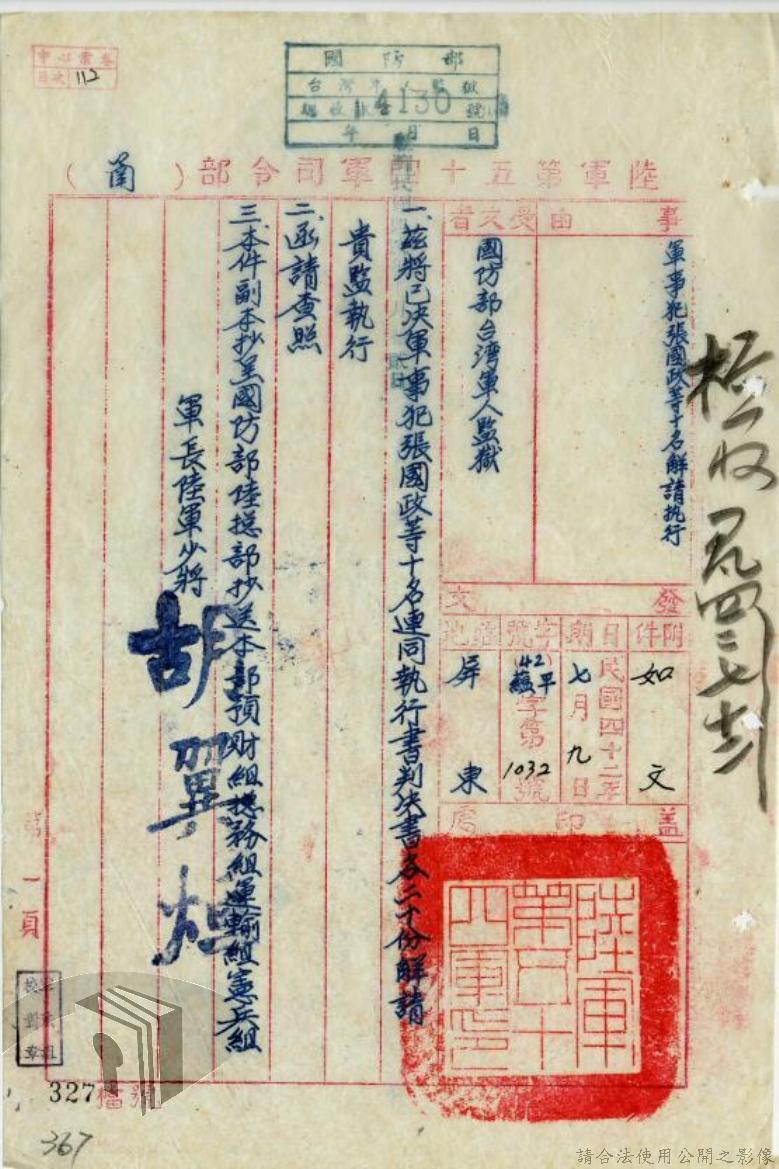 國防部
台灣軍人監獄
總收號4130號
年月日
陸軍第五十四軍司令部(函)
事由
軍事犯張國政等十名解請执行
受文者
國防部台湾軍人監獄
發文
附件
如文
日期
民國四十二年七月九日
字號
(42)蘊平字第1032號
駐地
屏東
蓋印處
陸軍第五十四軍印
一、茲將已決軍事犯張國政等十名連同执行書判決書各二十份解請
貴監執行
二、函請查照
三、本件副本抄呈國防部陸總部抄送本部預財組總務組運輸組憲兵組
軍長陸軍少將
胡翼烜
第一頁
112
檔號
327
367
請合法使用公開之影像